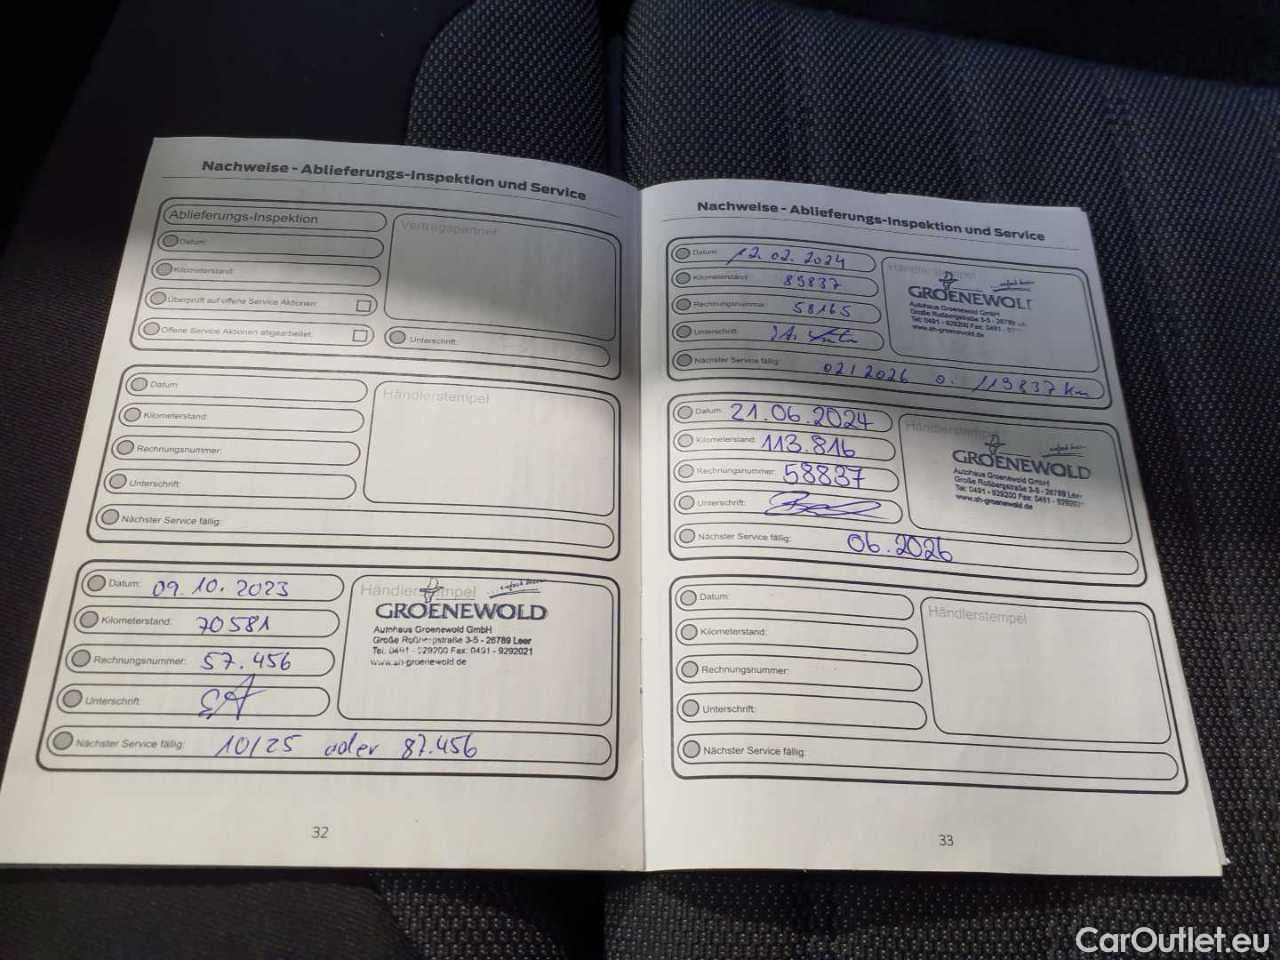 Nachweise - Ablieferungs-Inspektion und Service
Ablieferungs-Inspektion
Datum:
Kilometerstand:
Überprüft auf offene Service Aktionen:
Offene Service Aktionen abgearbeitet:
Vertragspartner
Unterschrift:
Datum:
Kilometerstand:
Rechnungsnummer:
Unterschrift:
Händlerstempel
Nächster Service fällig:
Datum: 09.10.2023
Kilometerstand: 70581
Rechnungsnummer: 57.456
Unterschrift:
Händlerstempel
einfach
GROENEWOLD
Autohaus Groenewold GmbH
Große Roßbergstraße 3-5 - 26789 Leer
Tel. 0491 - 929200 Fax: 0491 - 9292021
www.ah-groenewold.de
Nächster Service fällig: 10/25 oder 87.456
32
Nachweise - Ablieferungs-Inspektion und Service
Datum: 12.02.2024
Kilometerstand: 89837
Rechnungsnummer: 58165
Unterschrift:
Händlerstempel
einfach
GROENEWOLD
Autohaus Groenewold GmbH
Große Roßbergstraße 3-5 - 26789
Tel: 0491 - 929200 Fax: 0491 -
www.ah-groenewold.de
Nächster Service fällig: 02/2026 o. 119837 km
Datum: 21.06.2024
Kilometerstand: 113.816
Rechnungsnummer: 58837
Unterschrift:
Händlerstempel
einfach
GROENEWOLD
Autohaus Groenewold GmbH
Große Roßbergstraße 3-5 - 26789 Leer
Tel: 0491 - 929200 Fax: 0491 - 929202
www.ah-groenewold.de
Nächster Service fällig: 06.2026
Datum:
Kilometerstand:
Rechnungsnummer:
Unterschrift:
Händlerstempel
Nächster Service fällig:
33
CarOutlet.eu